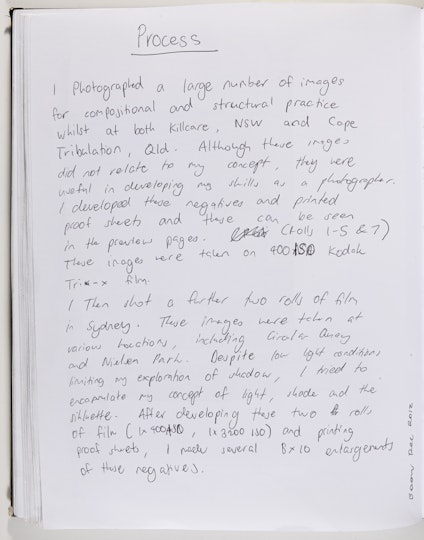 Process
I Photographed a large number of images
for compositional and structural practice
whilst at both Killcare, NSW and Cape
Tribulation, Qld. Although these images
did not relate to my concept, they were
useful in developing my skills as a photographer.
I developed these negatives and printed
proof sheets and these can be seen
in the previous pages. (rolls 1-5 & 7)
These images were taken on 400 ISO Kodak
Tri-x film.
I Then shot a further two rolls of film
in Sydney. These images were taken at
various locations, including Circular Quay
and Nielsen Park. Despite low light conditions
limiting my exploration of shadow, I tried to
encapsulate my concept of light, shade and the
silhouette. After developing these two rolls
of film (1x 400 ISO, 1x 3200 ISO) and printing
proof sheets, I made several 8x10 enlargements
of these negatives.
Dec 2012